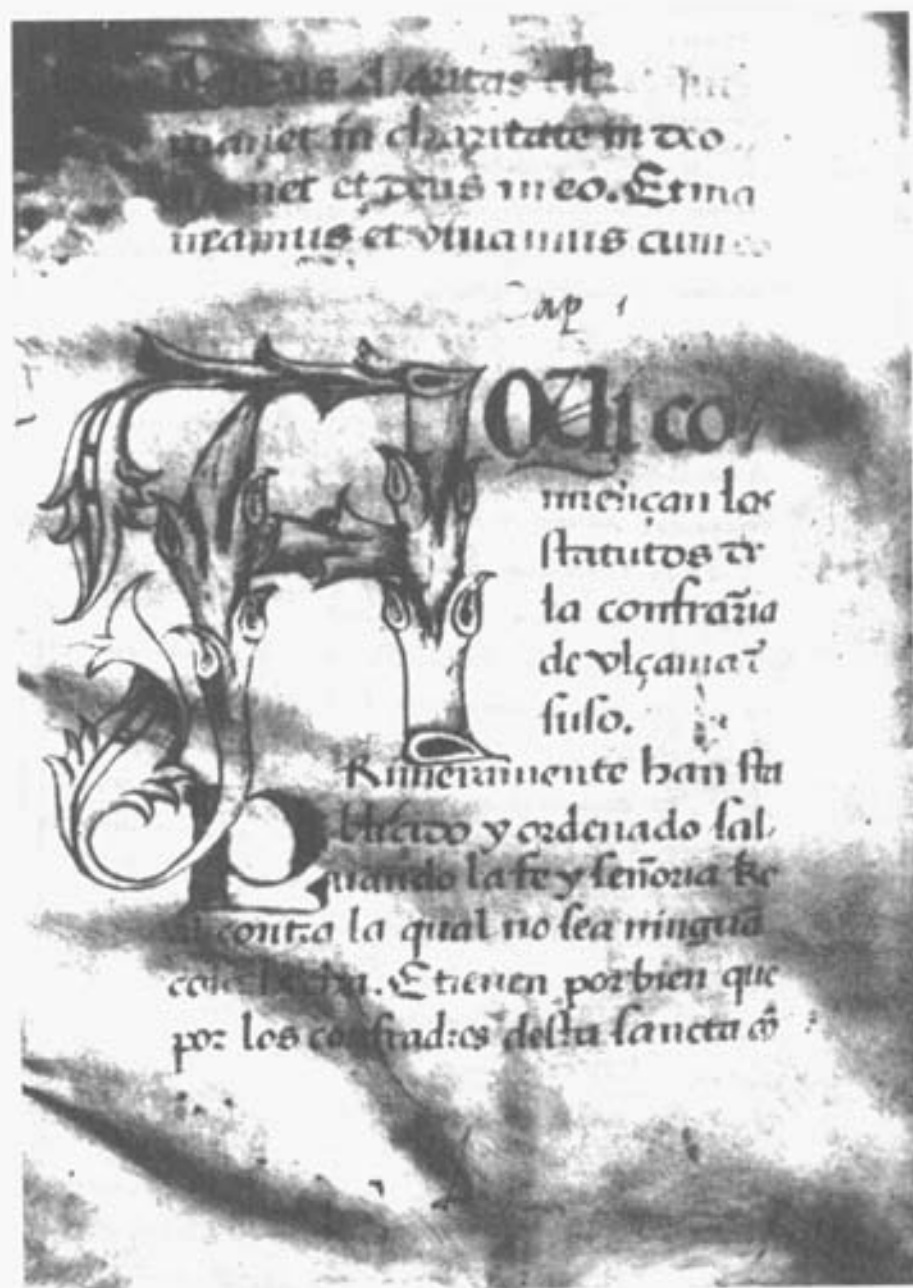 est
manet in charitate in deo
manet et deus in eo. Et ma
neamus et viuamus cum
Cap 1
Aqui co
miençan los
statutos de
la confraria
de vlçama
suso.
Rimeramente han sta
blecido y ordenado sal
uando la fe y señoria Re
al contra la qual no sea ningua
cosa fecha. E tienen por bien que
por los confradres desta sancta